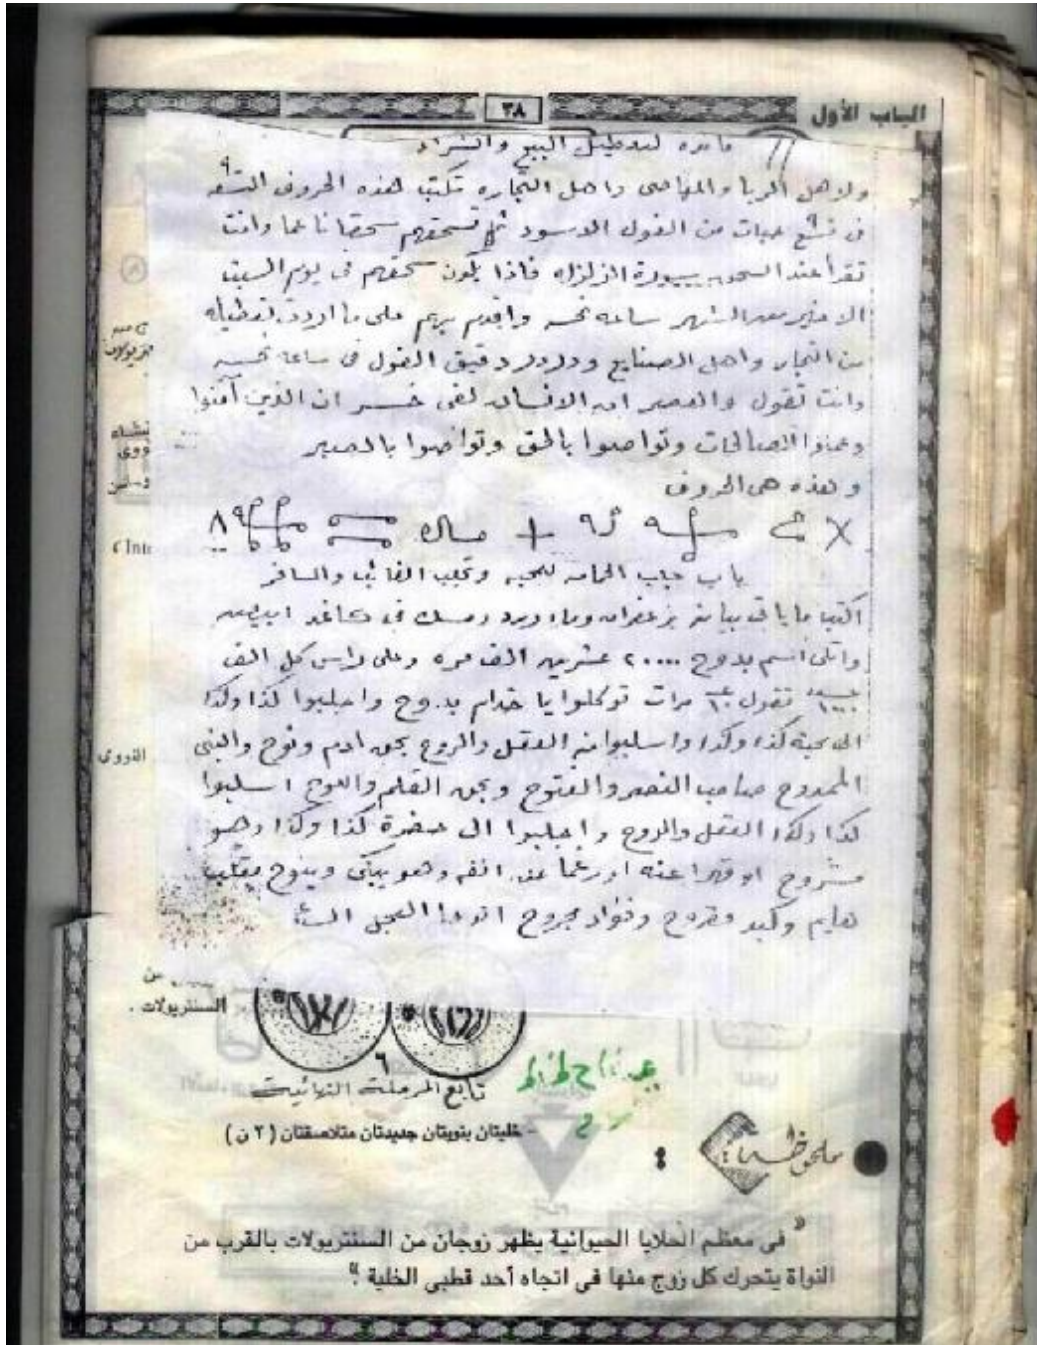 الباب الأول
٣٨
فائده لتعطيل البيع والشراء
ولاهل الربا والمعاصى واهل التجاره تكتب هذه الحروف التسعه ٩
فى تسع حبات من الفول الاسود ثم تسحقهم سحقا ناعما وانت
تقرأ عند السحق بسورة الزلزله فاذا يكون سحقهم فى يوم السبت
الاخير من الشهر ساعه نحسه على ما اردت تعطيله
من التجار واهل الصنايع دقيق الفول فى ساعة نحسه
وانت تقول والعصر ان الانسان لفى خسر ان الذين آمنوا
وعملوا الصالحات وتواصوا بالحق وتواصوا بالصبر
وهذه هى الحروف
باب جلب للمحبه وتجلب الغائب والمسافر
اكتب ما ياتى بيانه بزعفران وماء ورد ومسك فى كاغد ابيض
واتلى اسم بدوح ٢٠٠٠٠ عشرين الف مره وعلى راس كل الف
تقول ١٠ مرات توكلوا يا خدام بدوح واجلبوا كذا وكذا
الى محبة كذا وكذا واسلبوا منه العقل والروح بحق ادم ونوح والنبى
الممدوح صاحب النصر والفتوح وبحق القلم واللوح اسلبوا
كذا وكذا العقل والروح واجلبوا الى حضرة كذا وكذا وهو
مشروح او قهرا عنه او رغما عن انفه وهو يبكى وينوح بقلب
هايم وكبد مقروح وفؤاد مجروح الوحا العجل
من
السنتريولات .
٦
تابع المرحلة النهائية
- خليتان بنويتان جديدتان متلاصقتان (٢ ن)
ملحوظة :
" فى معظم الخلايا الحيوانية يظهر زوجان من السنتريولات بالقرب من
النواة يتحرك كل زوج منها فى اتجاه أحد قطبى الخلية "